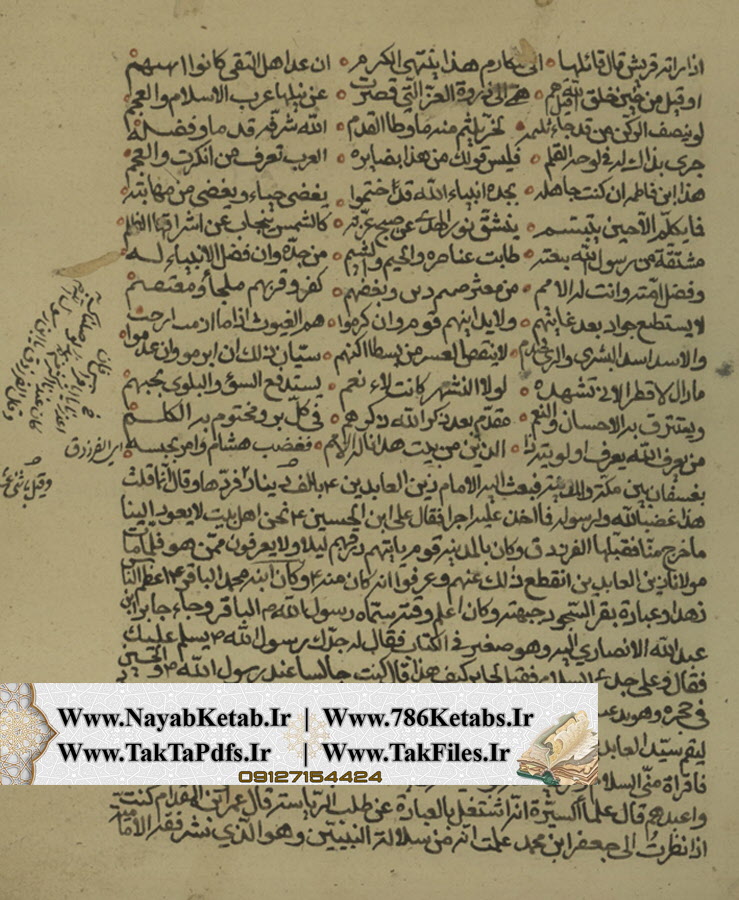 اذا راته قريش قال قائلها الى مكارم هذا ينتهى الكرم ان عد اهل التقى كانوا ائمتهم
او قيل من خلق الله قيل هم الى ذروة العز التى قصرت عن نيلها عرب الاسلام والعجم
الركن من قد جاء يلثمه لخر يلثم منه ما وطا القدم الله شرفه قدما وفضله
جرى بذاك له فى لوحه القلم فليس قولك من هذا بضايره العرب تعرف من انكرت والعجم
هذا ابن فاطمه ان كنت جاهله بجده انبياء الله قد ختموا يغضى حياء ويغضى من مهابته
فما يكلم الا حين يبتسم ينشق نور الهدى عن صبح غرته كالشمس ينجاب عن اشراقها الظلم
مشتقة من رسول الله نبعته طابت عناصره والخيم والشيم من جده دان فضل الانبياء له
وفضل امته دانت له الامم من معشر حبهم دين وبغضهم كفر وقربهم ملجأ ومعتصم
لا يستطيع جواد بعد غايتهم ولا يدانيهم قوم وان كرموا هم الغيوث اذا ما ازمة
والاسد اسد الشرى لا ينقص العسر من بسطا اكفهم سيان ذلك ان اثروا وان عدموا
ما قال لا قط الا فى تشهده لولا التشهد كانت لاءه نعم يستدفع السوء والبلوى بحبهم
ويسترق به الاحسان والنعم مقدم بعد ذكر الله ذكرهم فى كل بر ومختوم به الكلم
من يعرف الله يعرف اولوية ذا الدين من بيت هذا ناله الامم فغضب هشام وامر بحبسه
بعسفان بين مكة والمدينة فبعث اليه الامام زين العابدين ع بالف دينار فردها وقال انما قلت
هذا غضبا لله ولرسوله فما اخذ عليه اجرا فقال على ابن الحسين ع نحن اهل بيت لا يعود الينا
ما خرج منا فقبلها الفرزدق وكان بالمدينة قوم ياتيهم رزقهم ليلا ولا يعرفون ممن هو فلما مات
مولانا زين العابدين انقطع ذلك عنهم وعرفوا انه كان منه ع وكان ابنه محمد الباقر ع اعظم الناس
زهدا وعبادة بقر السجود جبهته وكان اعلم وقته سماه رسول الله ص الباقر وجاء جابر ابن
عبد الله الانصارى اليه وهو صغير فى الكتاب فقال له جدك رسول الله ص يسلم عليك
فقال وعلى جدى السلام فقيل لجابر كيف هذا قال كنت جالسا عند رسول الله ص والحسين
فى حجره وهو
ليقم سيد العابد
فاقراه منى السلام
واعبدهم قال علماء السيرة انه اشتغل بالعبادة عن طلب الرياسة قال عمر ابن المقدام كنت
اذا نظرت الى جعفر ابن محمد علمت انه من سلالة النبيين وهو الذى نشر فقه الامامية
Www.NayabKetab.Ir | Www.786Ketabs.Ir
Www.TakTaPdfs.Ir | Www.TakFiles.Ir
09127154424